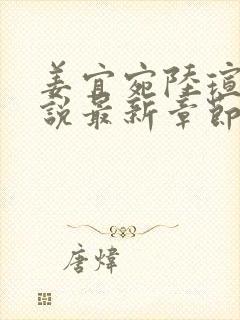 姜宜宛陸瑄
說最新章節
唐煒